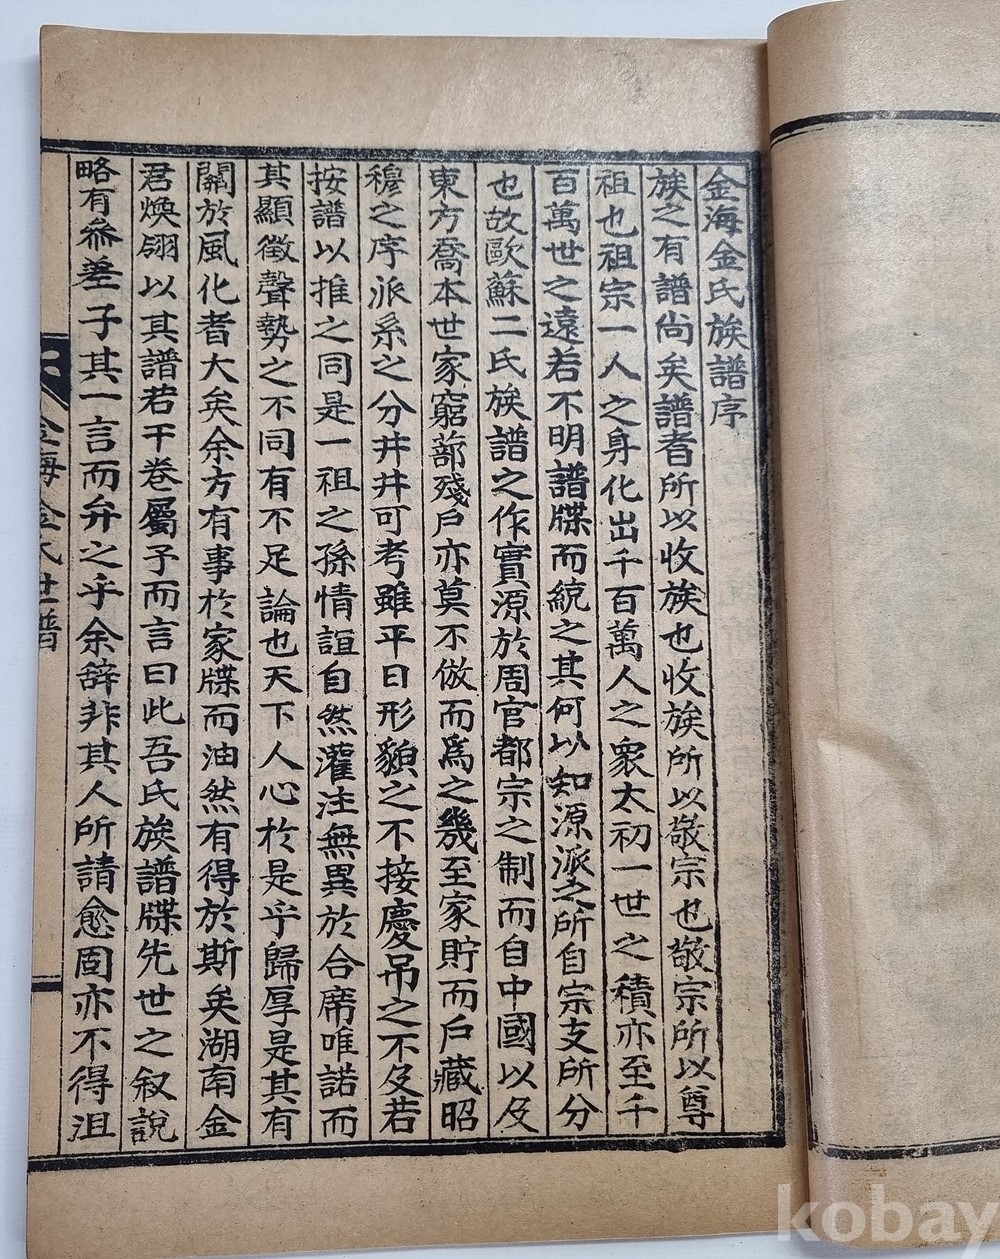 金海金氏族譜序
族之有譜尚矣譜者所以收族也收族所以敬宗也敬宗所以尊
祖也祖宗一人之身化出千百萬人之衆太初一世之積亦至千
百萬世之遠若不明譜牒而統之其何以知源派之所自宗支所分
也故歐蘇二氏族譜之作實源於周官都宗之制而自中國以及
東方喬本世家窮蔀殘戶亦莫不倣而爲之幾至家貯而戶藏昭
穆之序派系之分井井可考雖平日形貌之不接慶吊之不及若
按譜以推之同是一祖之孫情誼自然灌注無異於合席唯諾而
其顯徵聲勢之不同有不足論也天下人心於是乎歸厚是其有
關於風化者大矣余方有事於家牒而油然有得於斯矣湖南金
君煥翎以其譜若干卷屬子而言曰此吾氏族譜牒先世之叙說
略有叅差子其一言而弁之乎余辭非其人所請愈固亦不得沮
金海金氏世譜
kobay